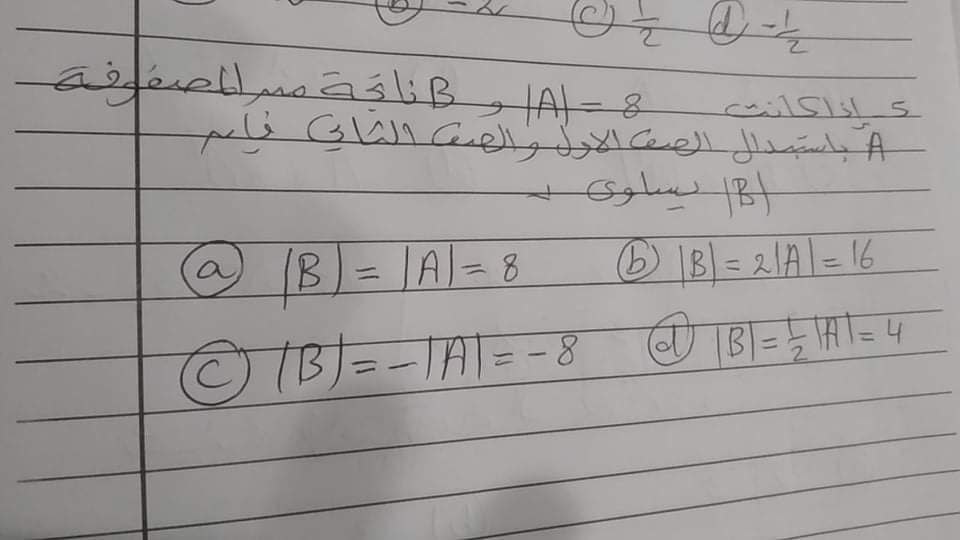 ⓒ 1/2 ⓓ -1/2
5 إذا كانت |A| = 8 و B ناتجة من المصفوفة
A باستبدال الصف الاول والصف الثاني فإن
|B| يساوى
ⓐ |B| = |A| = 8 ⓑ |B| = 2|A| = 16
ⓒ |B| = -|A| = -8 ⓓ |B| = 1/2 |A| = 4